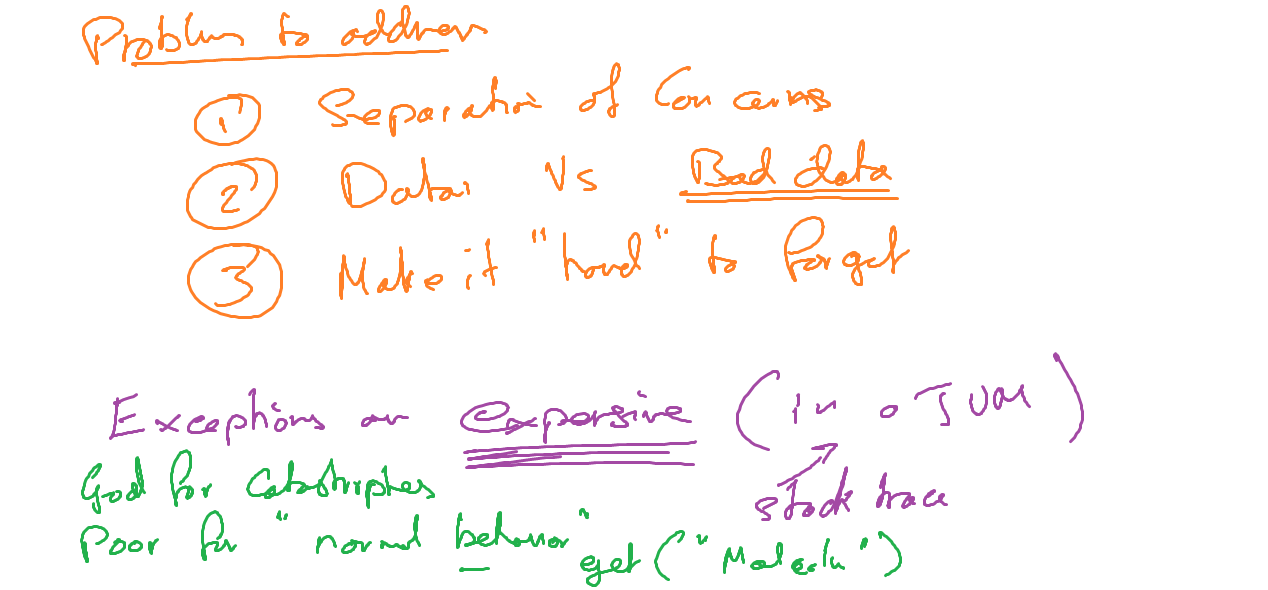 Problems to address
① Separation of Concerns
② Data Vs Bad data
③ Make it "hard" to forget
Exceptions are expensive (in a JVM)
stack trace
Good for Catastrophes
Poor for "normal behavior"
get("Malcolm")